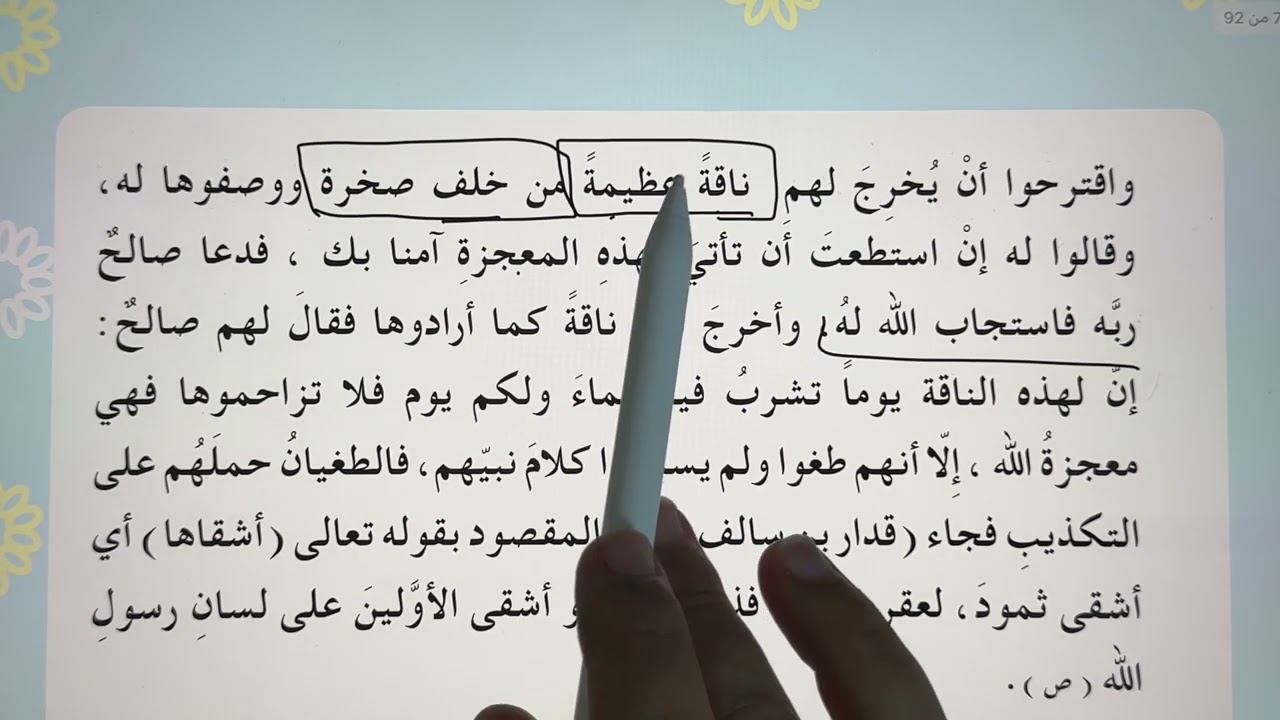 7 من 92
واقترحوا أنْ يُخرِجَ لهم ناقةً عظيمةً من خلف صخرة ووصفوها له،
وقالوا له إنْ استطعتَ أَن تأتيَ المعجزةِ آمنا بك ، فدعا صالحٌ
ربَّه فاستجاب الله لهُ، وأخرجَ ناقةً كما أرادوها فقالَ لهم صالحٌ:
إنّ لهذه الناقة يوماً تشربُ ولكم يوم فلا تزاحموها فهي
معجزةُ الله ، إِلّا أنهم طغوا ولم كلامَ نبيّهم، فالطغيانُ حملَهُم على
التكذيبِ فجاء (قدار بن سالف المقصود بقوله تعالى (أشقاها) أي
أشقى ثمودَ، أشقى الأوَّلينَ على لسانِ رسولِ
الله (ص).